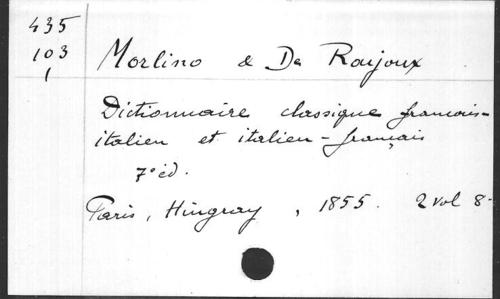 435
103
1
Morlino & De Roujoux
Dictionnaire classique français-
italien et italien-français
7e éd.
Paris, Hingray, 1855. 2 vol 8-